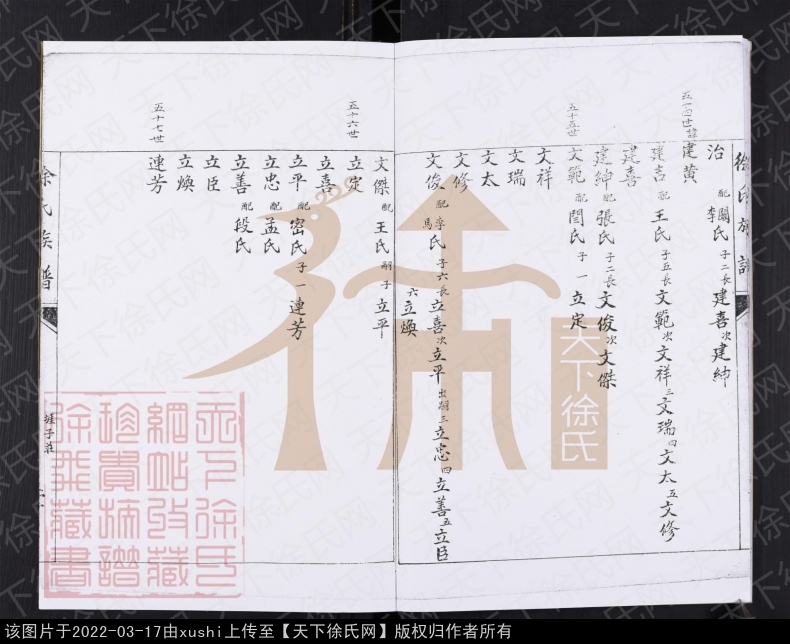 徐氏族譜
五十四世
建黄
治 配 關 李 氏 子二長 建喜 次 建紳
五十五世
建吉 配 王氏 子五長 文範 次 文祥 三 文瑞 四 文太 五 文修
建喜
建紳 配 張氏 子二長 文俊 次 文傑
文範 配 閆氏 子一 立定
文祥
文瑞
文太
文修
文俊 配 李 馬 氏 子六長 立喜 次 立平 出嗣 三 立忠 四 立善 五 立臣
六 立煥
五十六世
文傑 配 王氏 嗣子 立平
立定
立喜
立平 配 密氏 子一 連芳
立忠 配 孟氏
立善 配 段氏
立臣
立煥
五十七世
連芳
徐氏族譜
莊子
天下徐氏
天下徐氏網站收藏珍貴族譜徐飛藏書
天下徐氏网
该图片于2022-03-17由xushi上传至【天下徐氏网】版权归作者所有